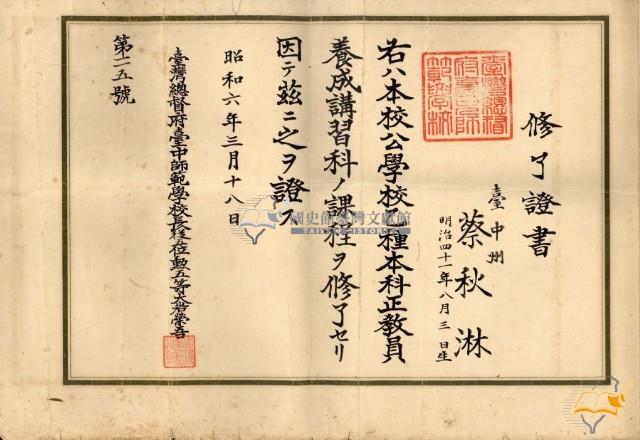 修了證書
臺中州
蔡秋淋
明治四十一年八月三日生
右ハ本校公學校乙種本科正教員
養成講習科ノ課程ヲ修了セリ
因テ茲ニ之ヲ證ス
昭和六年三月十八日
臺灣總督府臺中師範學校長從五位勳五等大岩榮吾
第二五號
臺灣總督府臺中師範學校
國史館臺灣文獻館